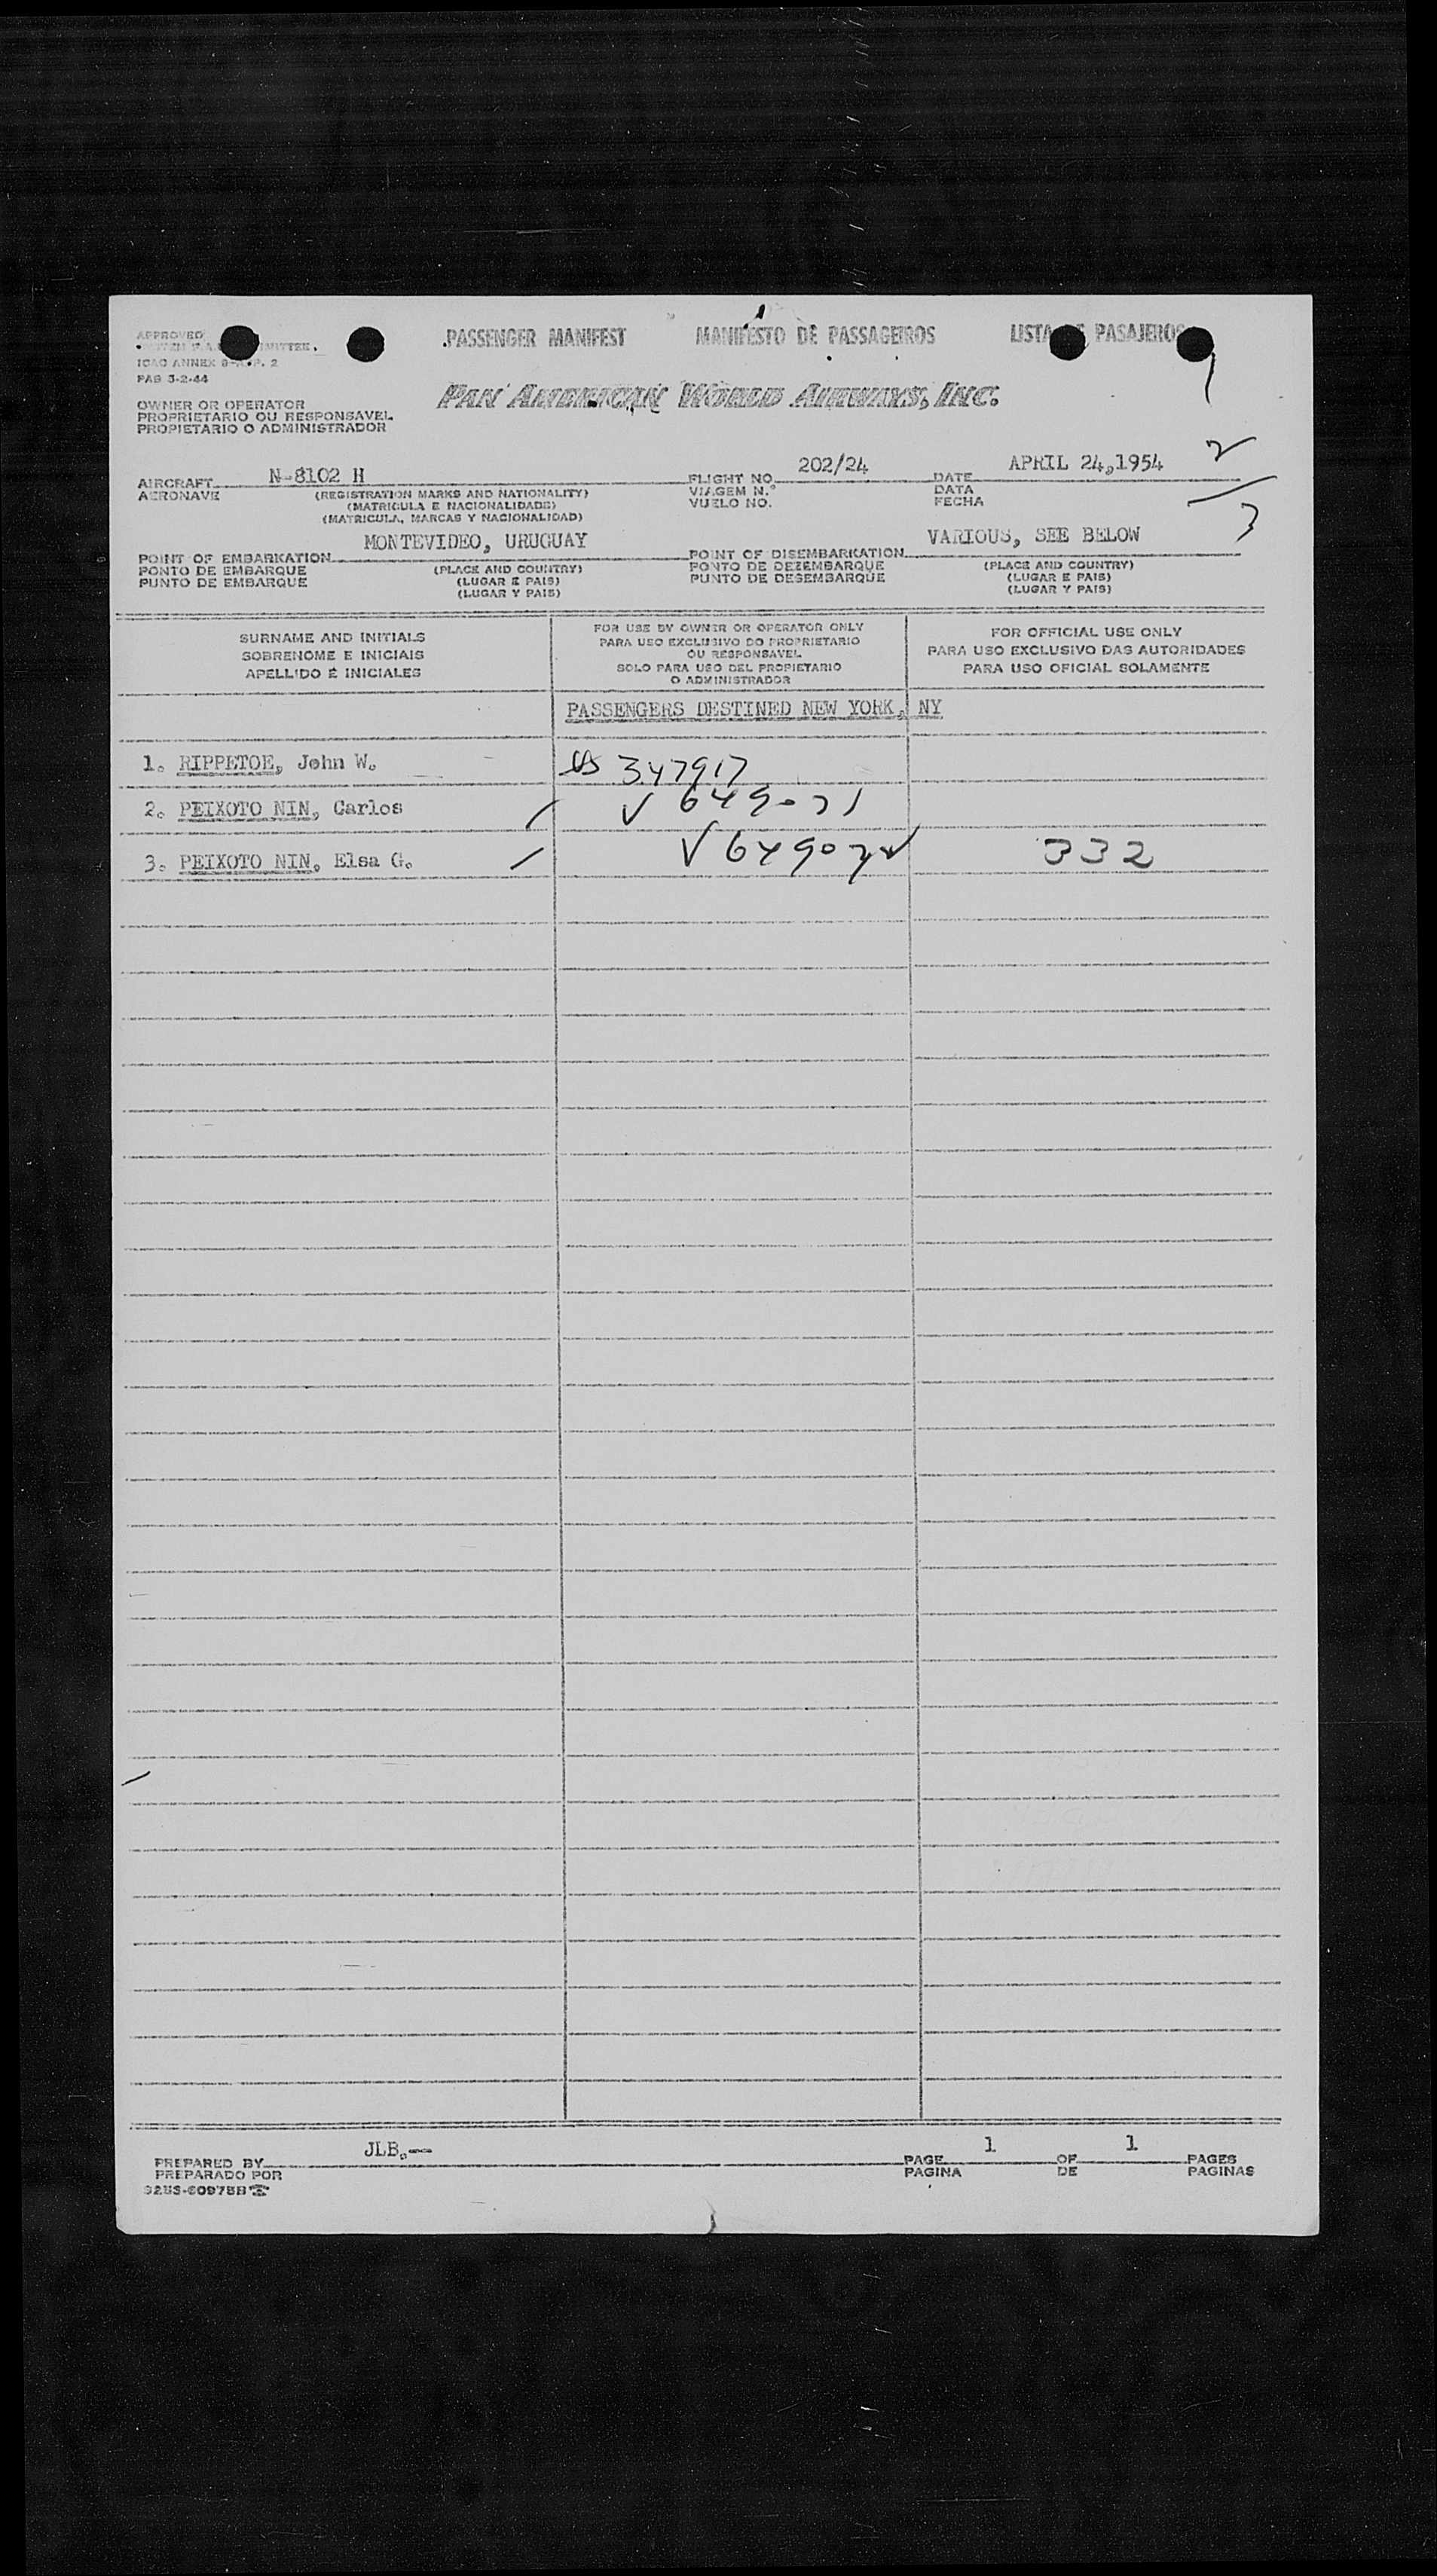 APPROVED
PASSENGER MANIFEST MANIFESTO DE PASSAGEIROS LISTA DE PASAJEROS
ICAO ANNEX 9-APP. 2
PAB 3-2-44
PAN AMERICAN WORLD AIRWAYS, INC.
OWNER OR OPERATOR
PROPRIETARIO OU RESPONSAVEL
PROPIETARIO O ADMINISTRADOR
1
2
3
AIRCRAFT N-8102 H FLIGHT NO. 202/24 DATE APRIL 24,1954
AERONAVE (REGISTRATION MARKS AND NATIONALITY) VIAGEM N.° DATA
(MATRICULA E NACIONALIDADE) VUELO NO. FECHA
(MATRICULA, MARCAS Y NACIONALIDAD)
POINT OF EMBARKATION MONTEVIDEO, URUGUAY POINT OF DISEMBARKATION VARIOUS, SEE BELOW
PONTO DE EMBARQUE (PLACE AND COUNTRY) PONTO DE DEZEMBARQUE (PLACE AND COUNTRY)
PUNTO DE EMBARQUE (LUGAR E PAIS) PUNTO DE DESEMBARQUE (LUGAR E PAIS)
(LUGAR Y PAIS) (LUGAR Y PAIS)
SURNAME AND INITIALS
SOBRENOME E INICIAIS
APELLIDO E INICIALES
FOR USE BY OWNER OR OPERATOR ONLY
PARA USO EXCLUSIVO DO PROPRIETARIO
OU RESPONSAVEL
SOLO PARA USO DEL PROPIETARIO
O ADMINISTRADOR
FOR OFFICIAL USE ONLY
PARA USO EXCLUSIVO DAS AUTORIDADES
PARA USO OFICIAL SOLAMENTE
PASSENGERS DESTINED NEW YORK, NY
1. RIPPETOE, John W. US 347917
2. PEIXOTO NIN, Carlos V 649071
3. PEIXOTO NIN, Elsa G. V 649072 332
PREPARED BY JLB.— PAGE 1 OF 1 PAGES
PREPARADO POR PAGINA DE PAGINAS